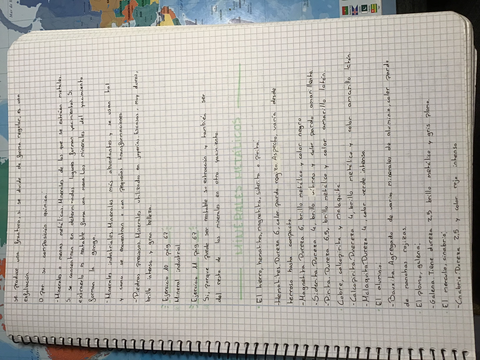 se produce una fractura, si se divide de forma regular, es una
exfoliación.
O por su composición química
- Menas o menas metálicas: Minerales de los que se extraen metales.
Si se concentran en determinados lugares forman yacimientos. Si
extraemos el metal de una mena los minerales del yacimiento
forman la ganga.
- Minerales industriales: Minerales más abundantes y se usan tal
y como se encuentran o con pequeñas transformaciones
- Piedras preciosas: Minerales utilizados en joyería. Escasos, muy duros,
brillo intenso y gran belleza.
Ejercicio 10 pág. 67
Mineral industrial
Ejercicio 11 pág. 67
Sí, porque puede ser rentable su extracción y también ser
del resto de minerales en otro yacimiento.
MINERALES METÁLICOS
- El hierro, hematites, magnetita, siderita y pirita.
Hematites: Dureza 6, color pardo negro. Aspecto, varía desde
terroso hasta compacto
- Magnetita: Dureza 6, brillo metálico y color negro
- Siderita: Dureza 4, brillo vítreo y color pardo amarillento
- Pirita: Dureza 6,5, brillo metálico y color amarillo latón.
Cobre, calcopirita y malaquita
- Calcopirita: Dureza 4, brillo metálico y color amarillo latón
- Malaquita: Dureza 4, color verde intenso
El aluminio
- Bauxita: Agregado de varios minerales de aluminio, color pardo
de manchas rojizas.
El plomo, galena
- Galena: Tiene dureza 2,5 brillo metálico y gris plomo.
El mercurio, cinabrio
- Cinabrio: Dureza 2,5 y color rojo intenso